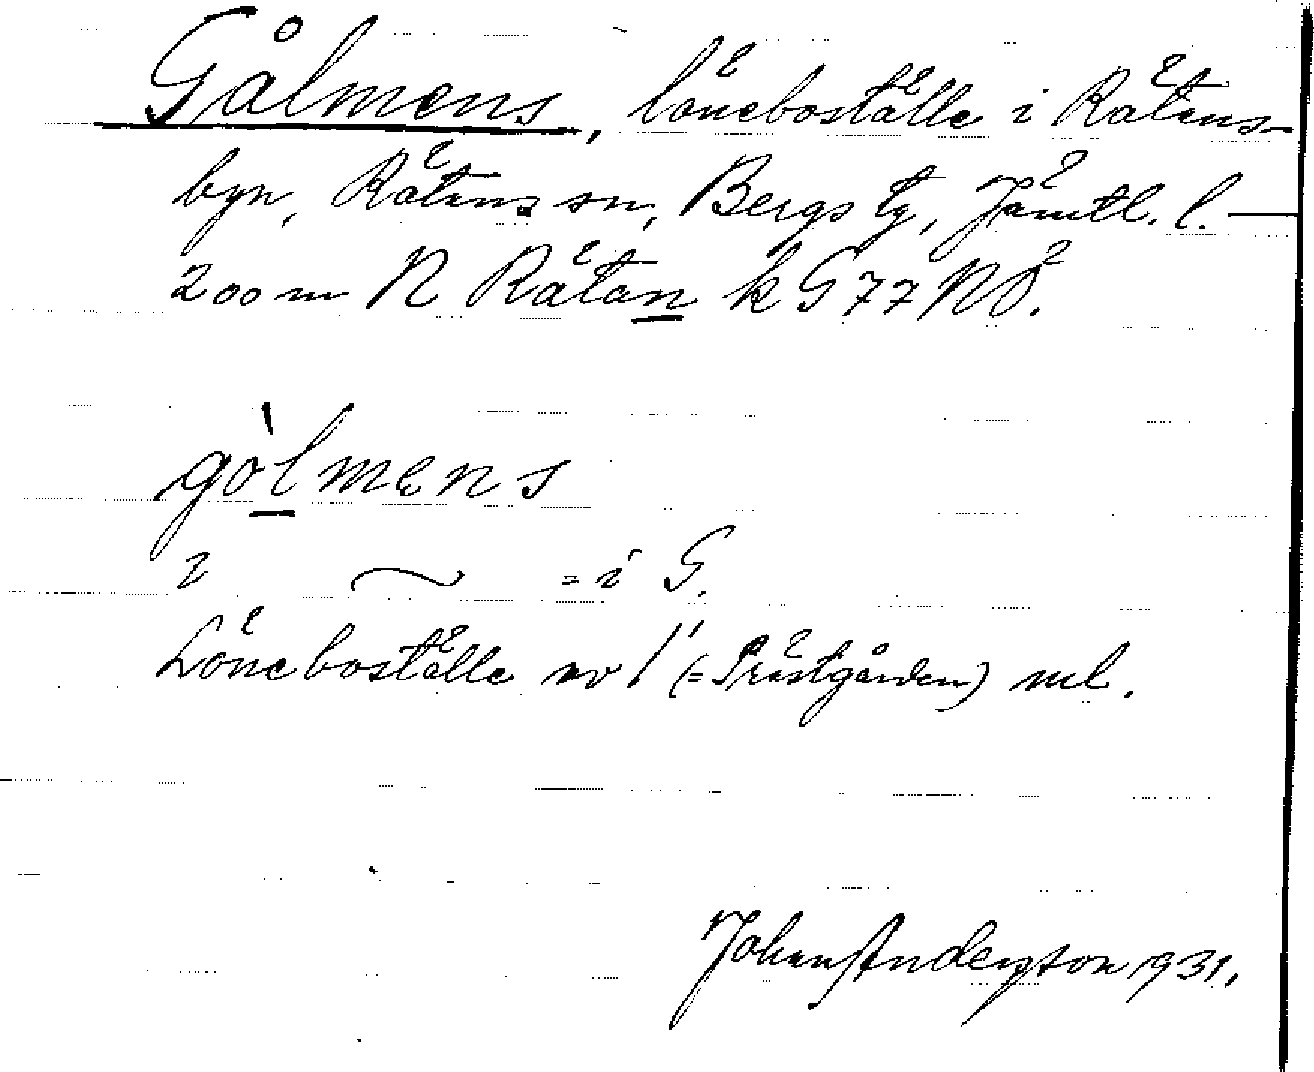 Gålmens, löneboställe i Rätans-
byn, Rätans sn, Bergs tg, Jämtl. l. —
200 m N Rätan k G 77 NÖ.
gòlmens
i ~ = i G.
Löneboställe nr 1 (= Prästgården) ml.
Johan Anderzton 1931.